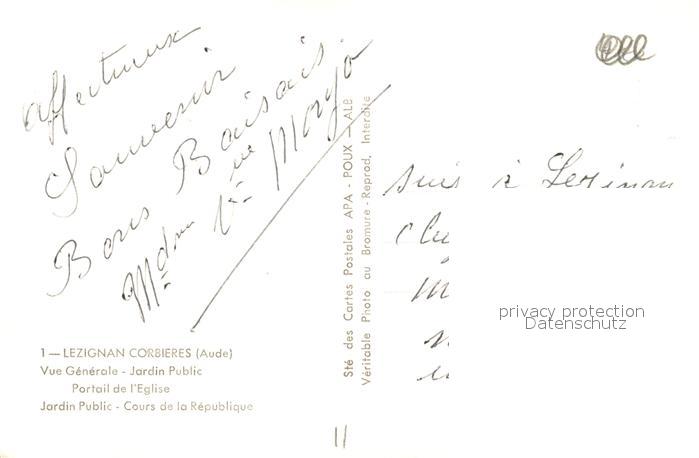 affectueux
Souvenir
Bons Baisais.
Vve Morgo
suis à Lesinan
1 — LEZIGNAN CORBIERES (Aude)
Vue Générale - Jardin Public
Portail de l'Eglise
Jardin Public - Cours de la République
Sté des Cartes Postales APA - POUX - ALB
Véritable Photo au Bromure - Reprod. Interdite
privacy protection
Datenschutz
11